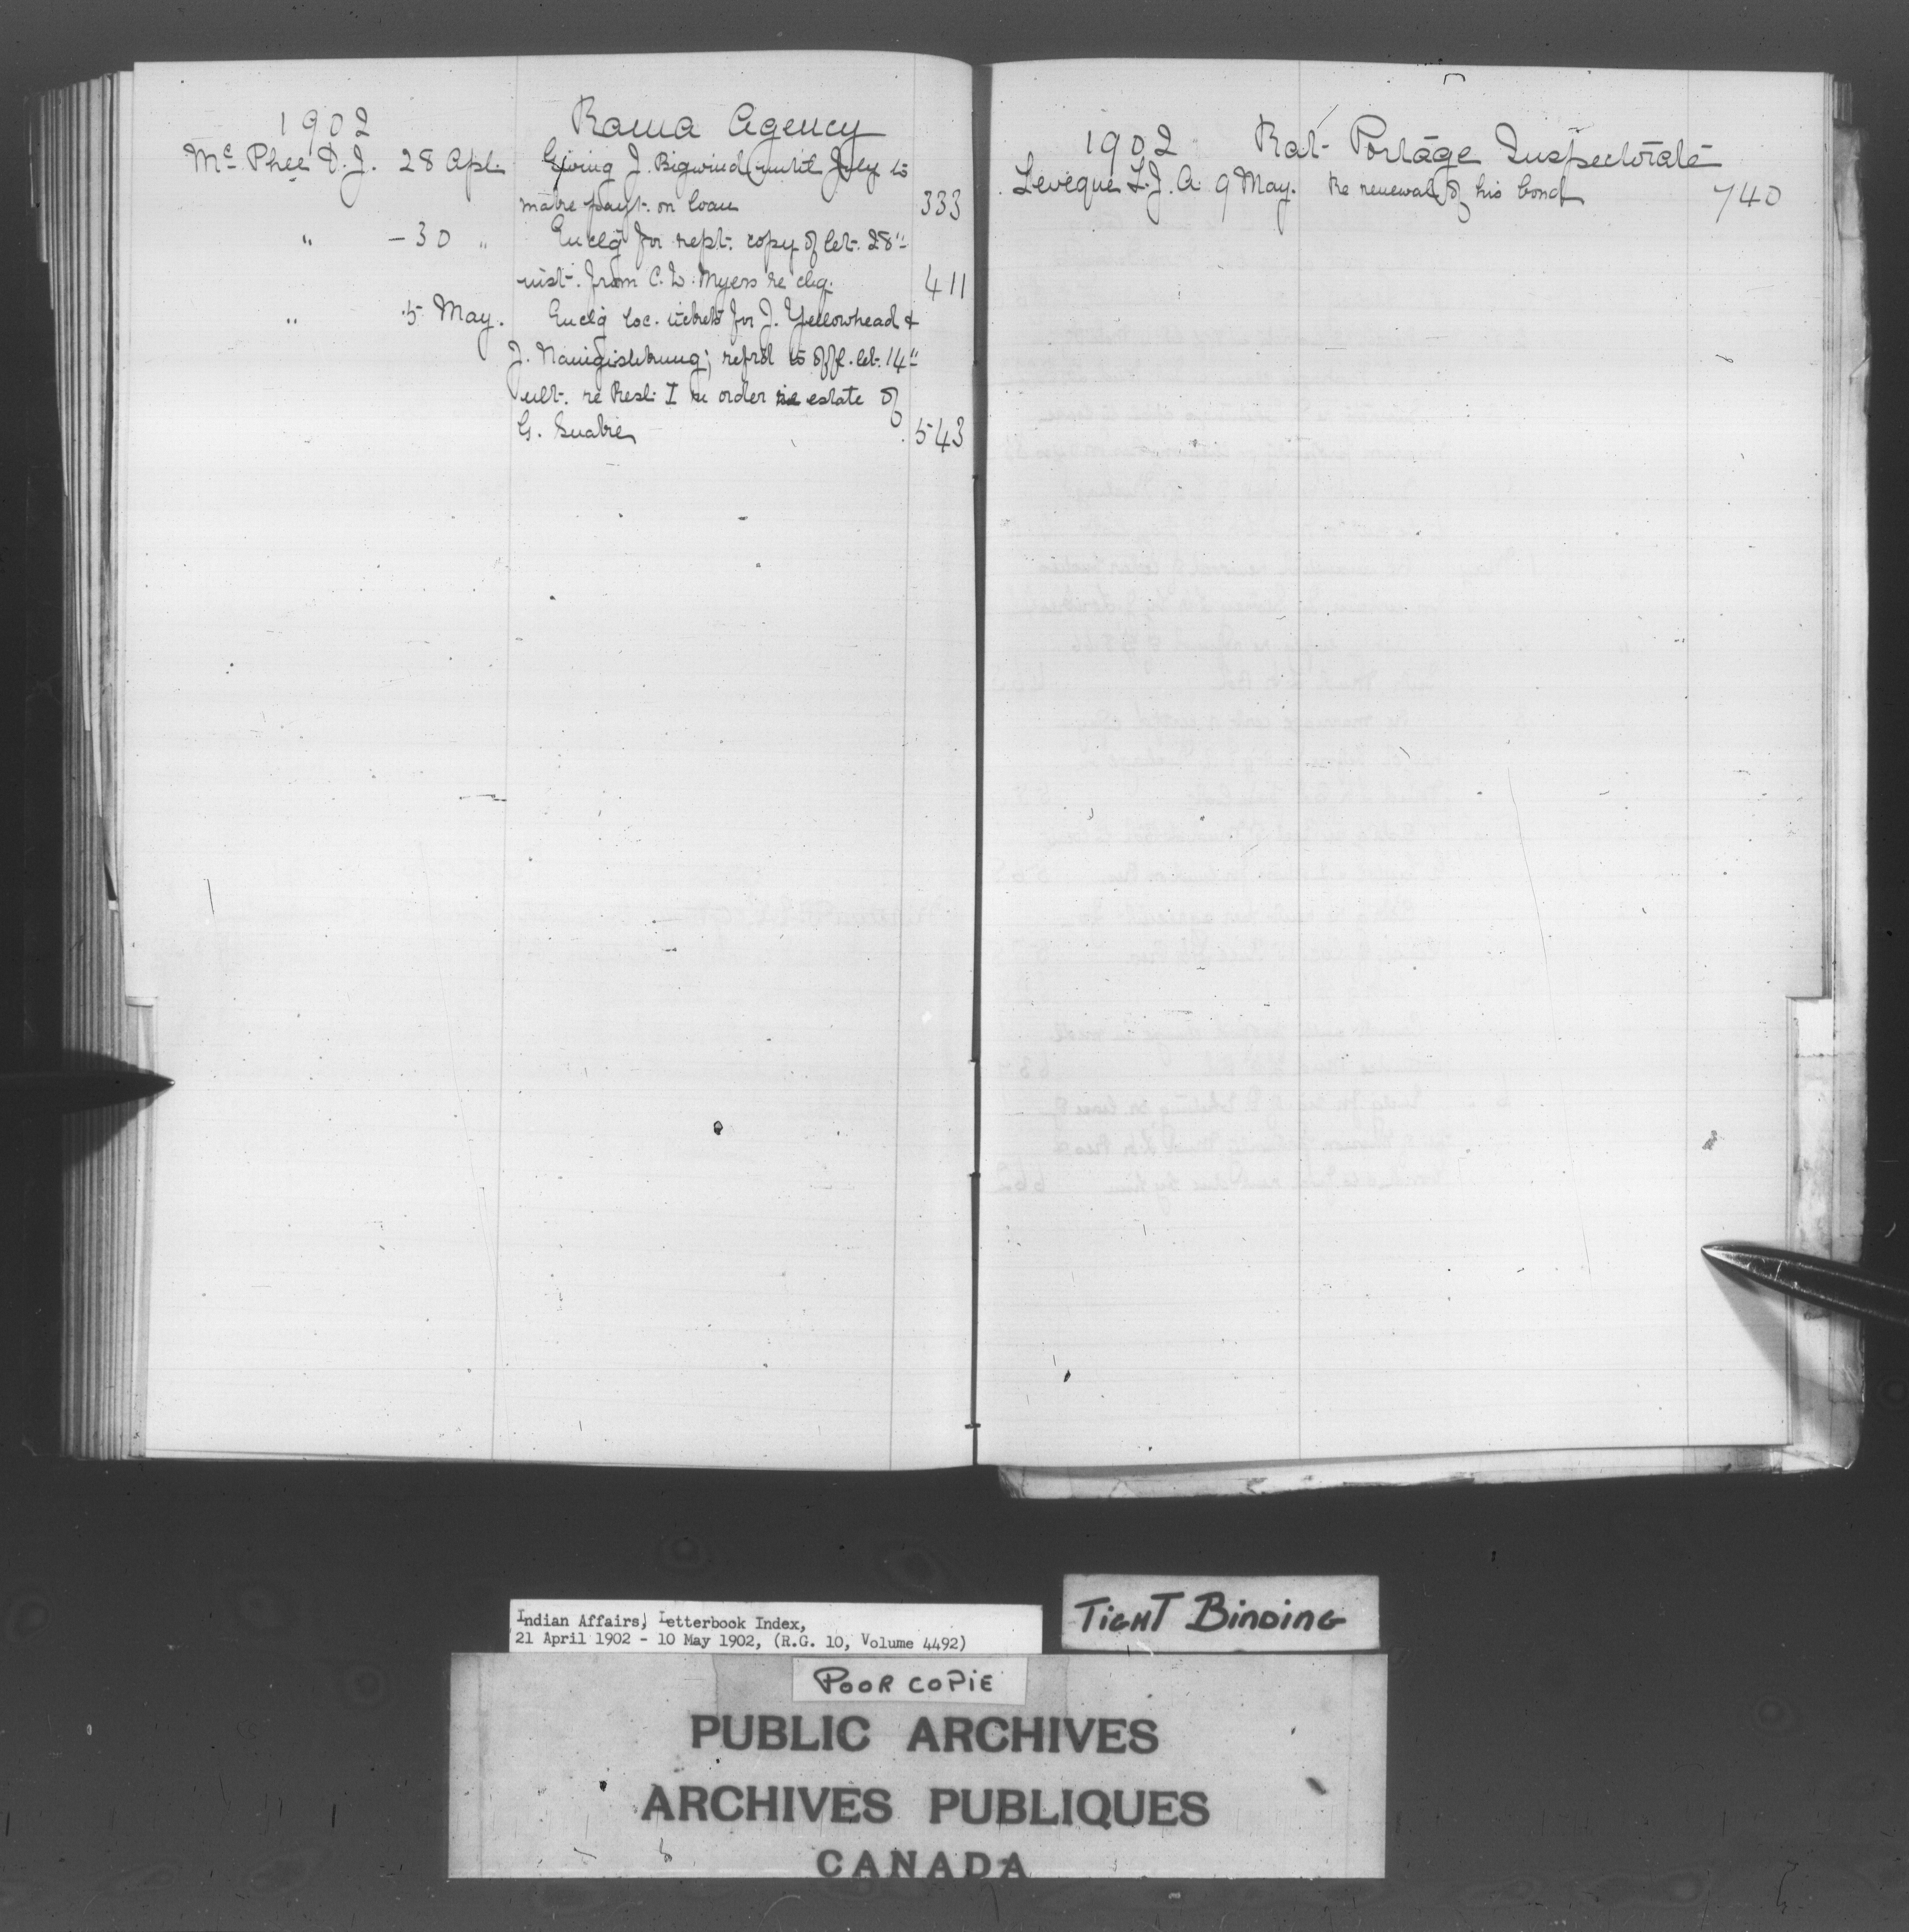 1902 Rama Agency
Mc Phee D. J. 28 Apl. Giving J. Bigwind until July to
make payt. on loan 333
" - 30 " Enclg for rept. copy of let. 28"
inst. from C. W. Myers re clg. 411
" 5 May. Enclg loc. tickets for J. Yellowhead &
J. ; refrd to offl. let. 14"
ult. re Resl. I re order re estate of
G. Snake 543
1902 Rat Portage Inspectorate
Leveque L. J. A. 9 May. Re renewal of his bond 740
Indian Affairs, Letterbook Index,
21 April 1902 - 10 May 1902, (R.G. 10, Volume 4492)
TIGHT BINDING
POOR COPIE
PUBLIC ARCHIVES
ARCHIVES PUBLIQUES
CANADA